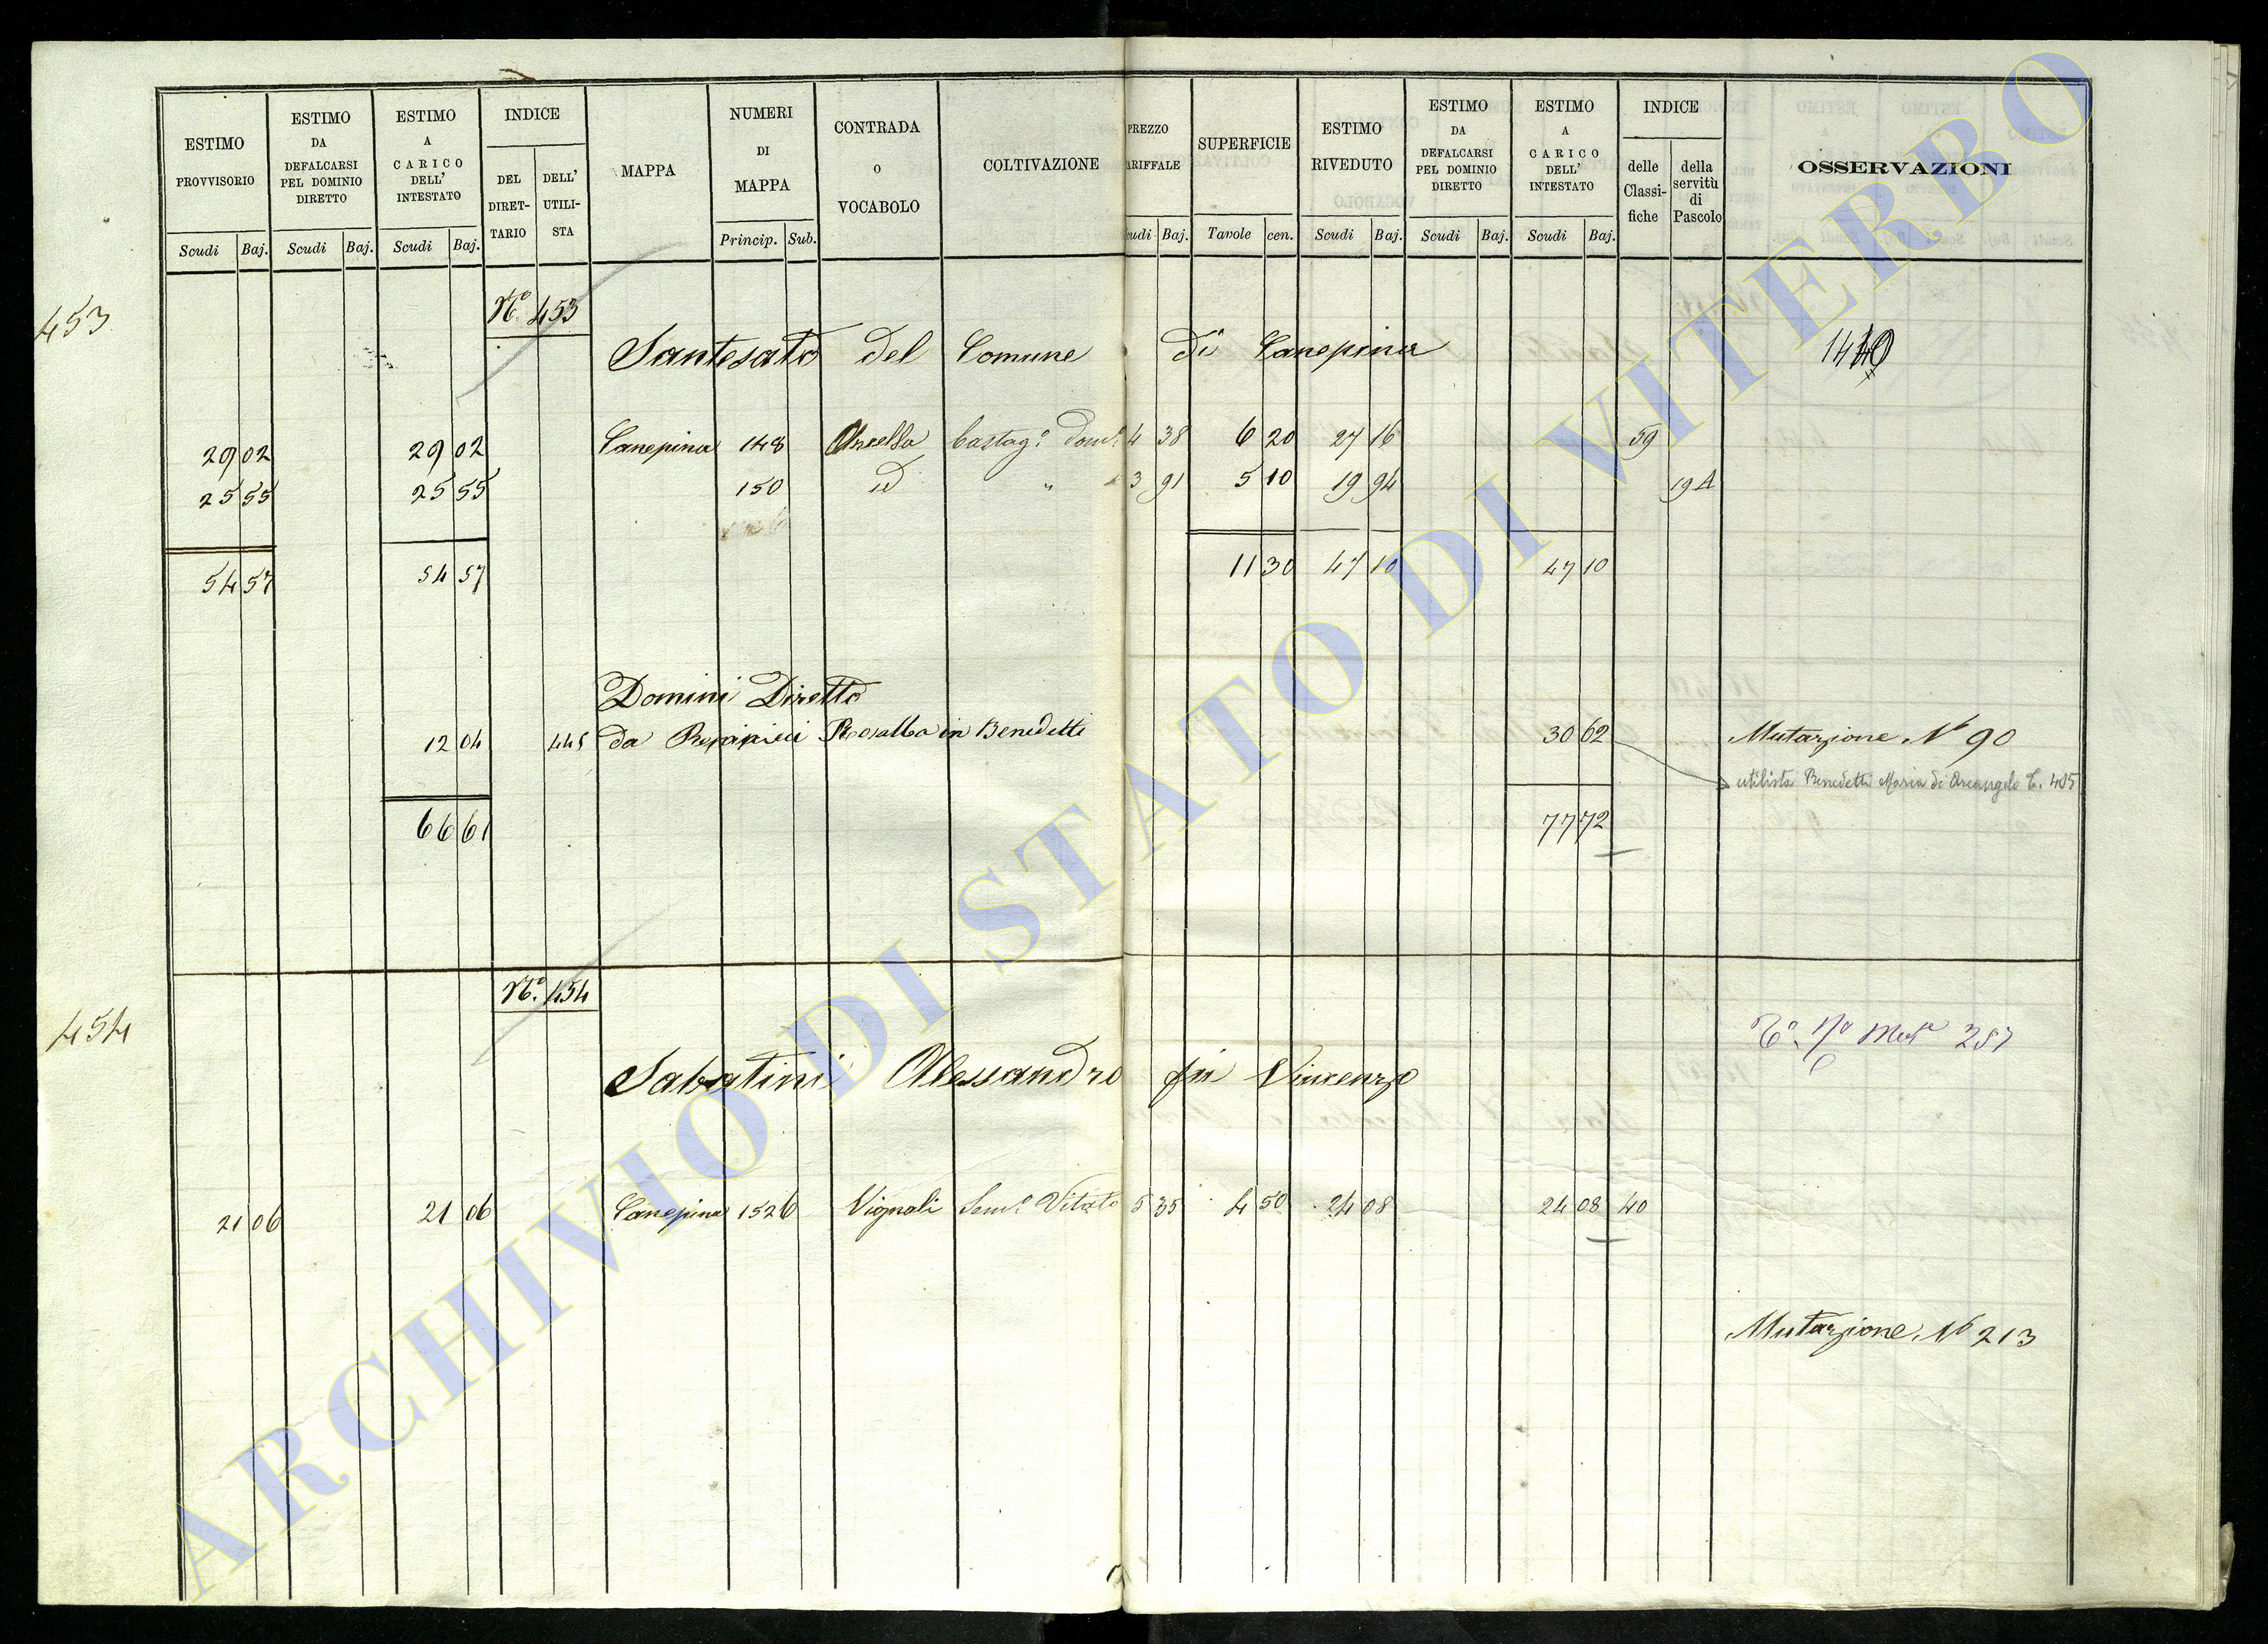 ESTIMO PROVVISORIO
ESTIMO DA DEFALCARSI PEL DOMINIO DIRETTO
ESTIMO A CARICO DELL' INTESTATO
INDICE
DEL DIRET-TARIO
DELL' UTILI-STA
MAPPA
NUMERI DI MAPPA
CONTRADA o VOCABOLO
COLTIVAZIONE
PREZZO TARIFFALE
SUPERFICIE
ESTIMO RIVEDUTO
ESTIMO DA DEFALCARSI PEL DOMINIO DIRETTO
ESTIMO A CARICO DELL' INTESTATO
INDICE
delle Classi-fiche
della servitù di Pascolo
OSSERVAZIONI
Scudi Baj. Scudi Baj. Scudi Baj. Princip. Sub. Scudi Baj. Tavole cen. Scudi Baj. Scudi Baj. Scudi Baj.
453
N.° 453
Santesato del Comune di Canepina
29 02 29 02 Canepina 148 Castag.° Dom.° 4 38 6 20 27 16 59
25 55 25 55 150 id " 3 91 5 10 19 94 19 A
54 57 54 57 11 30 47 10 47 10
Domini Diretto
12 04 445 da Rosalba in Benedetti 30 62 Mutazione N° 90
utilista Benedetti Maria di Arcangelo C. 485
66 61 77 72
454
N.° 454
Sabatini Alessandro fu Vincenzo
21 06 21 06 Canepina 1526 Vignali Sem.° Vitato 5 35 4 50 24 08 24 08 40
Mutazione N° 213
ARCHIVIO DI STATO DI VITERBO